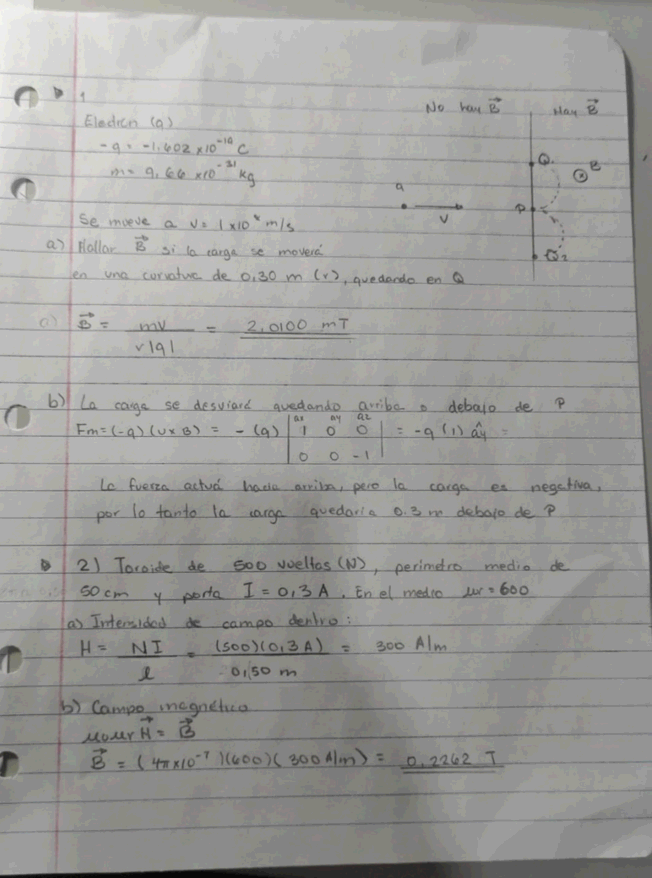 1
No hay B⃗ Hay B⃗
Electron (q)
-q = -1.602 x10⁻¹⁹ C
m = 9.66 x10⁻³¹ kg
Q B
q
v
P
Q2
Se mueve a v = 1x10⁸ m/s
a) Hallar B⃗ si la carga se moverá
en una curvatura de 0,30 m (r), quedando en Q
a) B⃗ = mv / r|q| = 2,0100 mT
b) La carga se desviará quedando arriba o debajo de P
Fm=(-q)(v x B) = -(q) | ax ay az | = -q(1) ây =
| 1 0 0 |
| 0 0 -1 |
La fuerza actuá hacia arriba, pero la carga es negativa,
por lo tanto la carga quedaria 0.3 m debajo de P
2) Toroide de 500 vueltas (N), perimetro medio de
50 cm y porta I = 0,3 A. En el medio μr = 600
a) Intensidad de campo dentro:
H = NI / l = (500)(0,3 A) / 0,50 m = 300 A/m
b) Campo magnético
μoμr H⃗ = B⃗
B⃗ = (4π x10⁻⁷)(600)(300 A/m) = 0.2262 T